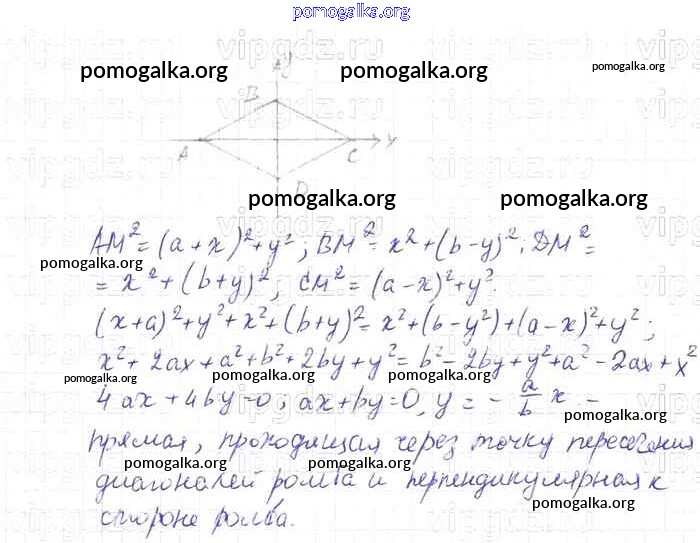 pomogalka.org
vipgdz.ru
pomogalka.org pomogalka.org pomogalka.org
y
B
A C x
D
pomogalka.org pomogalka.org
AM² = (a+x)²+y²; BM² = x²+(b-y)²; DM² =
pomogalka.org
= x²+(b+y)²; CM² = (a-x)²+y².
(x+a)²+y²+x²+(b+y)² = x²+(b-y²)+(a-x)²+y²;
x²+2ax+a²+b²+2by+y² = b²-2by+y²+a²-2ax+x²
pomogalka.org pomogalka.org
4ax+4by=0; ax+by=0, y = -a/b x -
pomogalka.org
прямая, проходящая через точку пересечения
pomogalka.org pomogalka.org
диагоналей ромба и перпендикулярная к
pomogalka.org
стороне ромба.